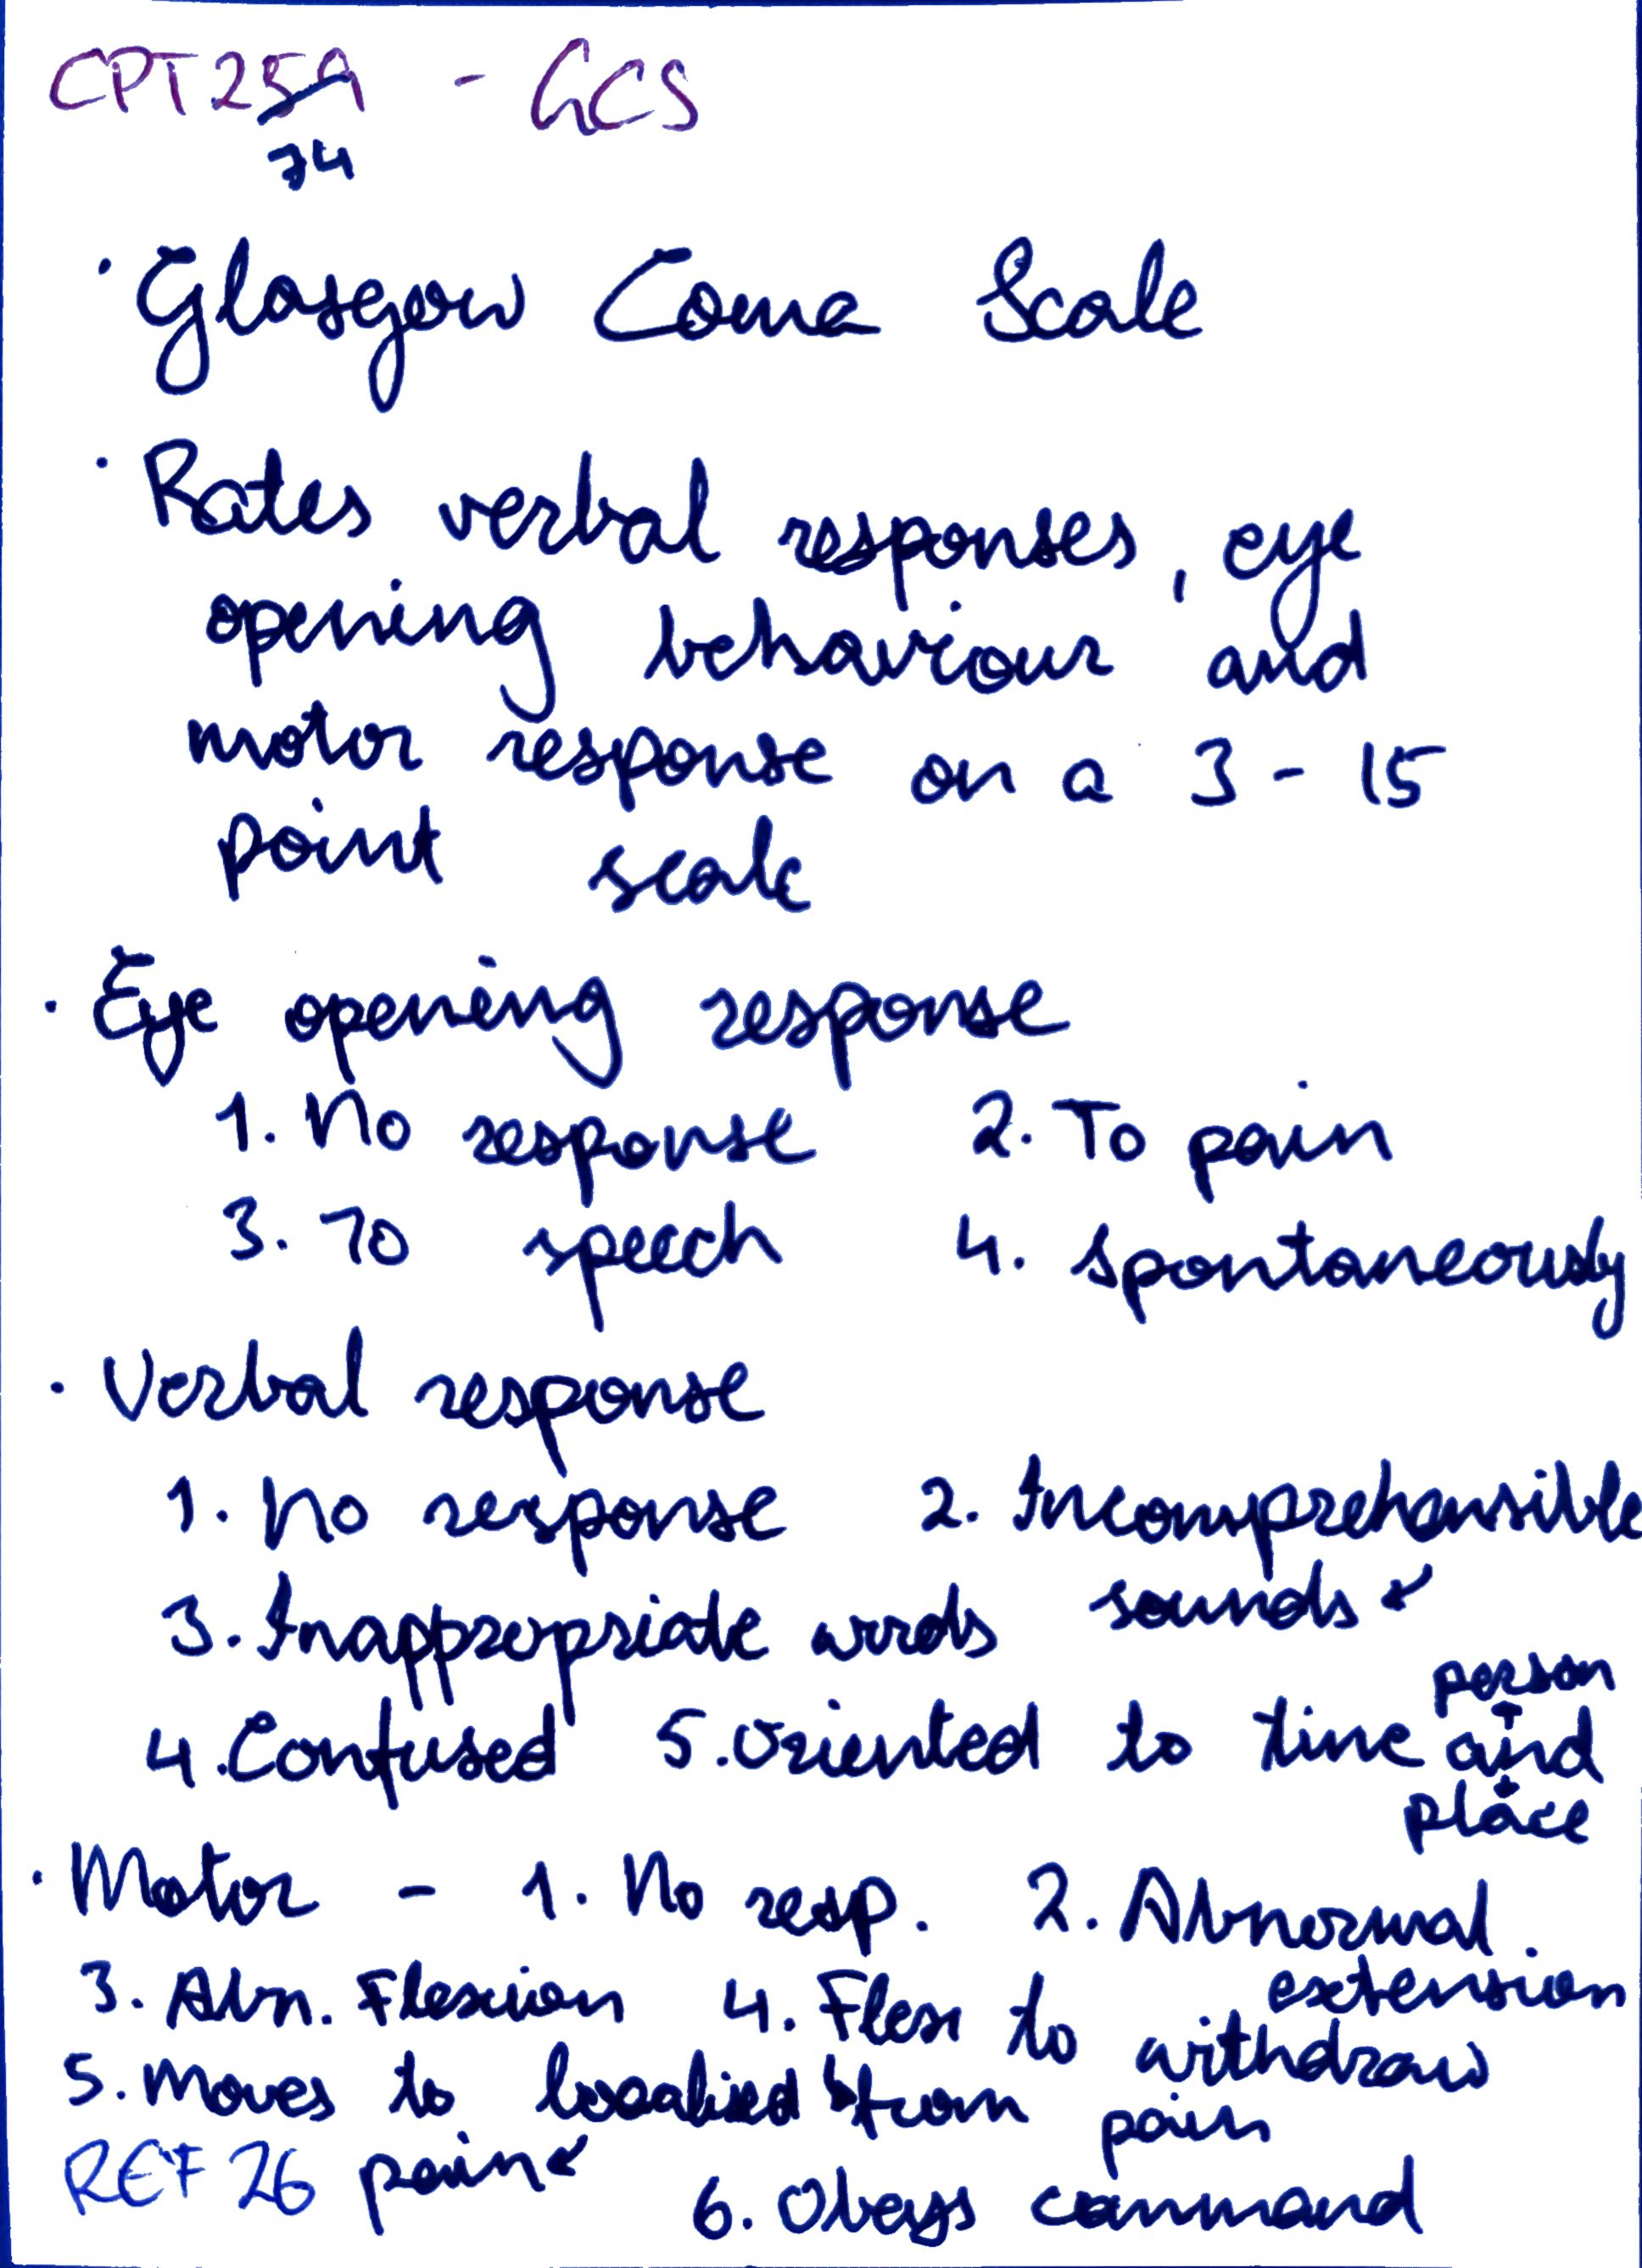 CPT259 - GCS
74
· Glasgow Coma Scale
· Rates verbal responses, eye
opening behaviour and
motor response on a 3 - 15
point scale
· Eye opening response
1. No response 2. To pain
3. To speech 4. spontaneously
· Verbal response
1. No response 2. Incomprehensible
3. Inappropriate words sounds
person
4. Confused 5. Oriented to time and
+ place
· Motor - 1. No resp. 2. Abnormal
extension
3. Abn. Flexion 4. Flex to withdraw
5. Moves to localised from pain
REF 26 pain
6. Obeys command